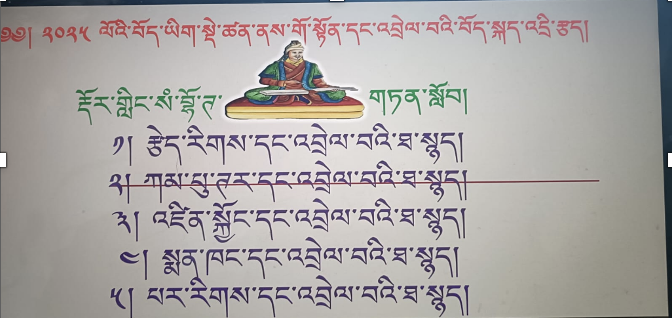 ༄༅། ༢༠༢༥ ལོའི་བོད་ཡིག་སྡེ་ཚན་ནས་གོ་སྟོན་དང་འབྲེལ་བའི་བོད་སྐད་འདྲི་རྩད།
རྡོར་གླིང་སཾ་བྷོ་ཊ་ གཏན་སློབ།
༡། རྩེད་རིགས་དང་འབྲེལ་བའི་ཐ་སྙད།
༢། ཀམ་པུ་ཊར་དང་འབྲེལ་བའི་ཐ་སྙད།
༣། འཛིན་སྐྱོང་དང་འབྲེལ་བའི་ཐ་སྙད།
༤། སྨན་ཁང་དང་འབྲེལ་བའི་ཐ་སྙད།
༥། པར་རིགས་དང་འབྲེལ་བའི་ཐ་སྙད།